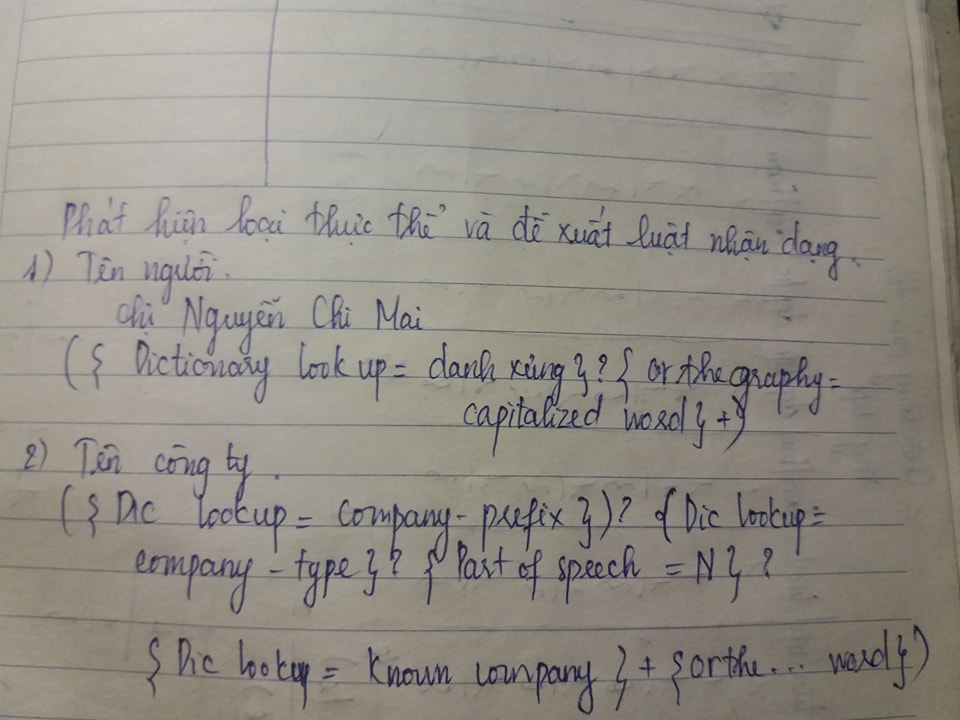 Phát hiện loại thực thể và đề xuất luật nhận dạng.
1) Tên người.
chị Nguyễn Chi Mai
({ Dictionary look up = danh xưng}? { orthegraphy =
capitalized word} +)
2) Tên công ty.
({ Dic lookup = company - prefix })? {Dic lookup =
company - type}? { Part of speech = N} ?
{ Dic lookup = Known company } + {orthe... word})